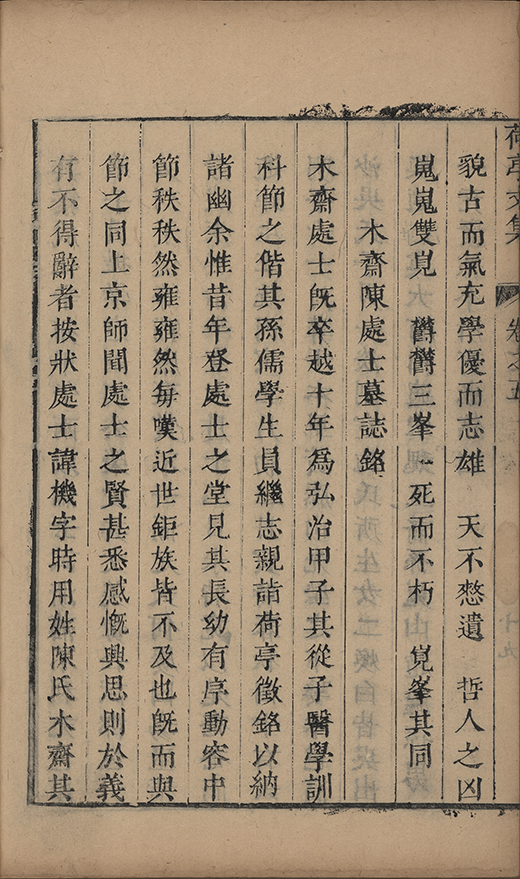 荷亭文集
卷之五
貌古而氣充學優而志雄　天不憗遺　哲人之凶
嵬嵬雙見　欝欝三峯　一死而不朽　見峯其同
木齋陳處士墓誌銘
木齋處士既卒越十年為弘治甲子其從子醫學訓
科節之偕其孫儒學生員繼志親詣荷亭徵銘以納
諸幽余惟昔年登處士之堂見其長幼有序動容中
節秩秩然雍雍然每嘆近世鉅族皆不及也既而與
節之同上京師聞處士之賢甚悉感慨興思則於義
有不得辭者按狀處士諱機字時用姓陳氏木齋其